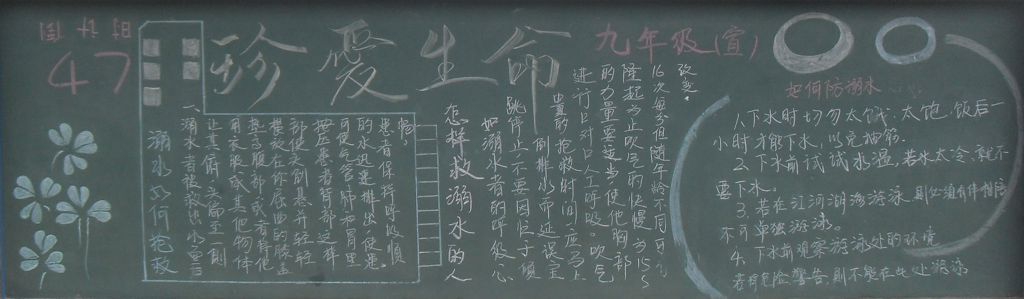 倒计时
47
珍爱生命
九年级(宣)
溺水如何抢救
一、溺水者被救出水面后
让其俯卧
用衣服或其他物体
垫高腹部或者将他
横放在你屈曲的膝盖
部使头朝悬并轻轻
按压患者背部这样
可使气管肺和胃里
的水迅速排出使患
患者保持呼吸顺
畅。
怎样救溺水的人
如溺水者的呼吸心
跳停止不要因忙于倾
倒排水而延误宝
贵的抢救时间应马上
进行口对口人工呼吸。吹气
的力量要适当使他胸部
隆起为止吹气的快慢为15~
16次每分但随年龄不同可
改变。
如何防溺水
1.下水时切勿太饿、太饱。饭后一
小时才能下水，以免抽筋。
2.下水前试试水温，若水太冷，就不
要下水。
3.若在江河湖海游泳，则必须有伴相陪
不可单独游泳。
4.下水前观察游泳处的环境
若有危险警告，则不能在此处游泳